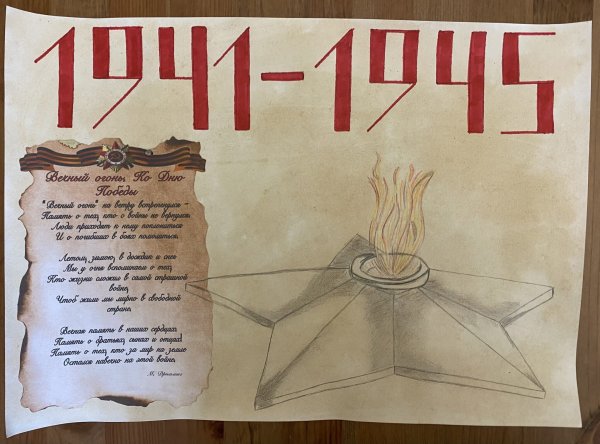 1941-1945
Вечный огонь. Ко Дню
Победы
"Вечный огонь" на ветру встрепенулся -
Память о тех, кто с войны не вернулся.
Люди приходят к нему поклониться
И о погибших в боях помолиться.
Летом, зимою, в дождик и снег
Мы у огня вспоминаем о тех,
Кто жизни сложил в самой страшной
войне,
Чтоб жили мы мирно в свободной
стране.
Вечная память в наших сердцах:
Память о братьях, сынах и отцах!
Память о тех, кто за мир на земле
Остался навечно на этой войне.
М.